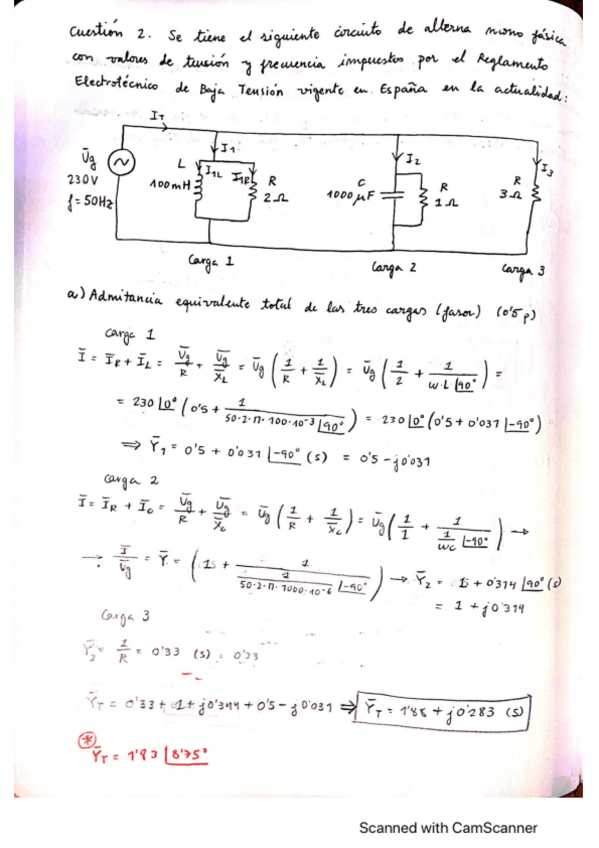 Cuestión 2. Se tiene el siguiente circuito de alterna monofásica
con valores de tensión y frecuencia impuestos por el Reglamento
Electrotécnico de Baja Tensión vigente en España en la actualidad:
I_T
Ūg
230V
f=50Hz
I_1
L
100mH
I_1L
I_1R
R
2Ω
Carga 1
I_2
C
1000μF
R
1Ω
Carga 2
I_3
R
3Ω
Carga 3
a) Admitancia equivalente total de las tres cargas (fasor) (0'5p)
Carga 1
Ī = Ī_R + Ī_L = Ūg/R + Ūg/X̄_L = Ūg (1/R + 1/X̄_L) = Ūg (1/2 + 1/(w·L |90°)) =
= 230 |0° (0'5 + 1/(50·2·π·100·10⁻³ |90°)) = 230 |0° (0'5 + 0'031 |-90°)
⇒ Ȳ_1 = 0'5 + 0'031 |-90° (s) = 0'5 - j0'031
Carga 2
Ī = Ī_R + Ī_C = Ūg/R + Ūg/X̄_C = Ūg (1/R + 1/X̄_C) = Ūg (1/1 + 1/(1/wC |-90°)) →
→ Ī/Ūg = Ȳ = (1s + 1/(1/(50·2·π·1000·10⁻⁶) |-90°)) → Ȳ_2 = 1s + 0'314 |90° (s)
= 1 + j0'314
Carga 3
Ȳ_3 = 1/R = 0'33 (s) = 0'33
Ȳ_T = 0'33 + 1 + j0'314 + 0'5 - j0'031 ⇒ Ȳ_T = 1'88 + j0'283 (s)
*
Ȳ_T = 1'83 |8'75°
Scanned with CamScanner